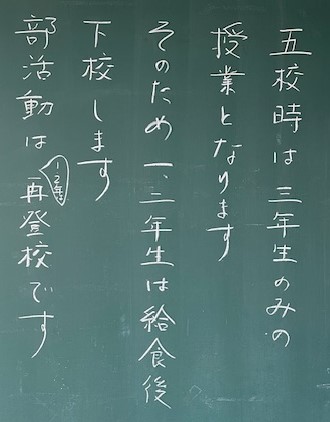 五校時は三年生のみの
授業となります
そのため一、二年生は給食後
下校します
部活動は再登校です
1,2年生